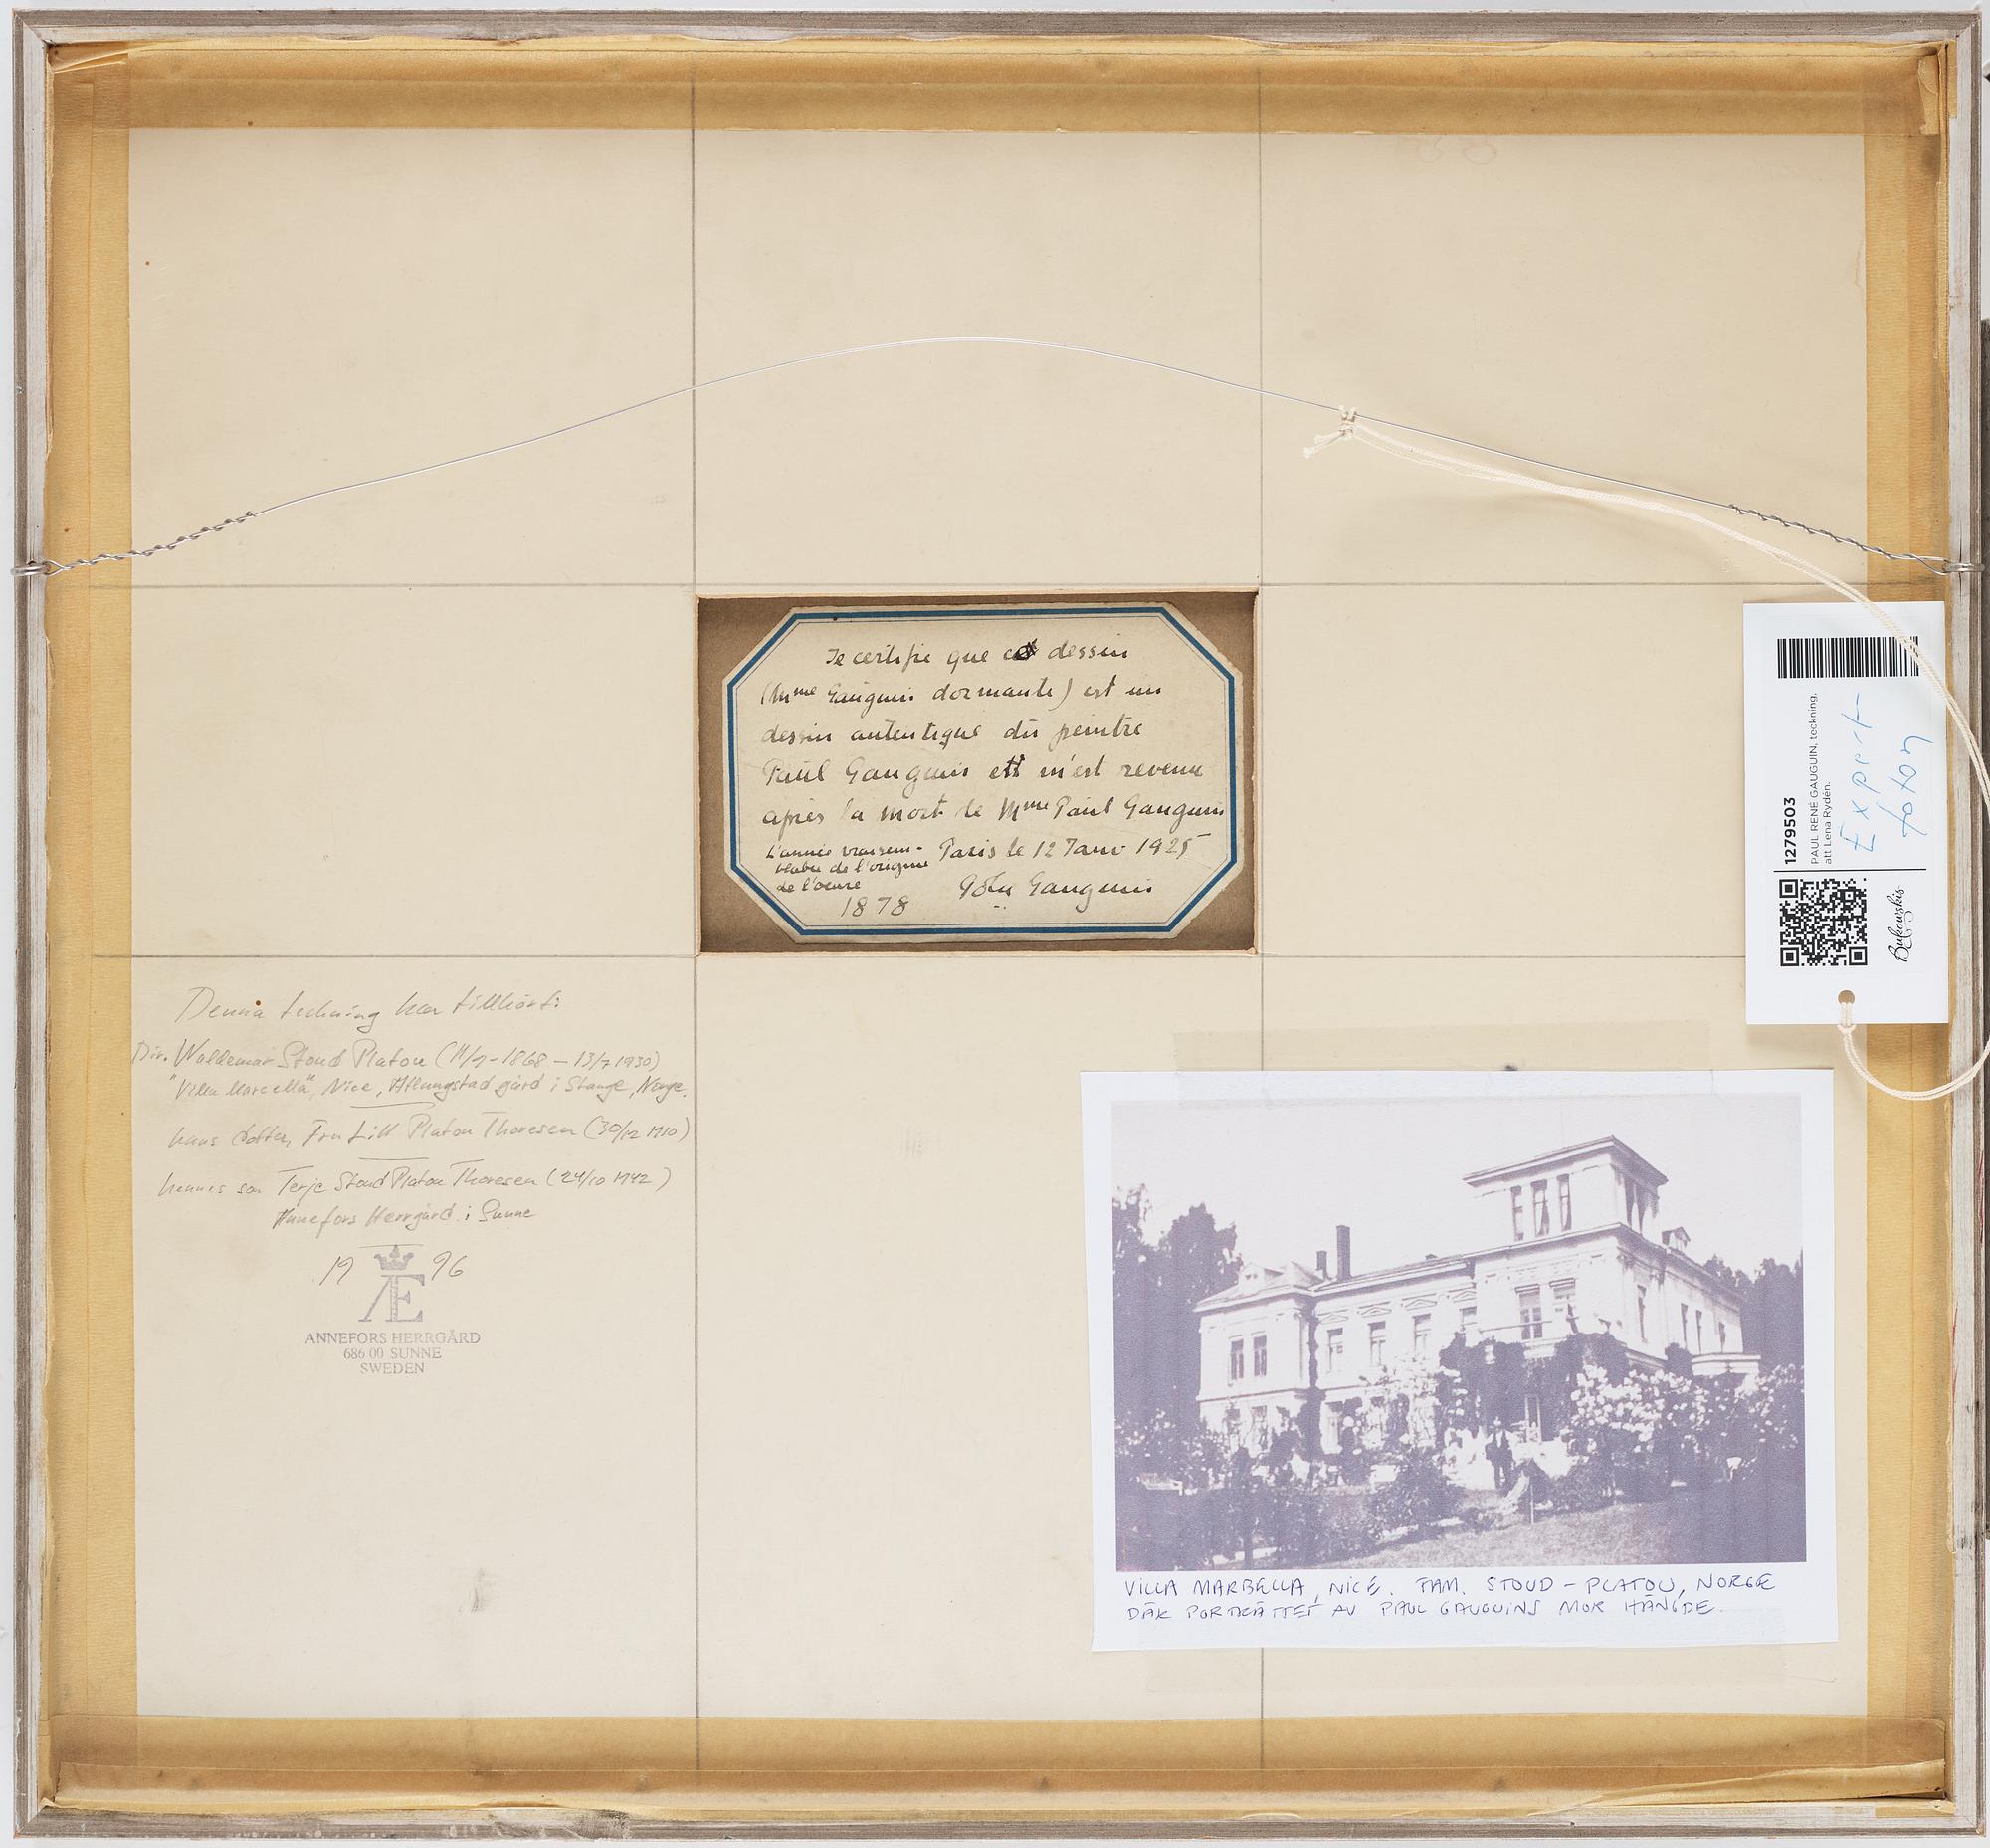 Je certifie que ce dessin
(Mme Gauguin dormante) est un
dessin autentique du peintre
Paul Gauguin et m'est revenu
après la mort de Mme Paul Gauguin
Paris le 12 Janv 1925
L'année vraisem-
blable de l'origine
de l'oeuvre
1878
Pola Gauguin
1279503
PAUL RENÉ GAUGUIN, teckning,
att Lena Rydén.
Export
foton
Bukowskis
Denna teckning har tillhört:
Dir. Waldemar Stoud Platou (11/9-1868 – 13/7 1930)
"Villa Marcella", Nice, Atlungstad gård i Stange, Norge.
hans dotter, Fru Lill Platou Thoresen (30/12 1910)
hennes son Terje Stoud Platou Thoresen (24/10 1942)
Annefors Herrgård i Sunne
19 96
Æ
ANNEFORS HERRGÅRD
686 00 SUNNE
SWEDEN
VILLA MARBELLA, NICE. FAM. STOUD – PLATOU, NORGE
DÄR PORTRÄTTET AV PAUL GAUGUINS MOR HÄNGDE.